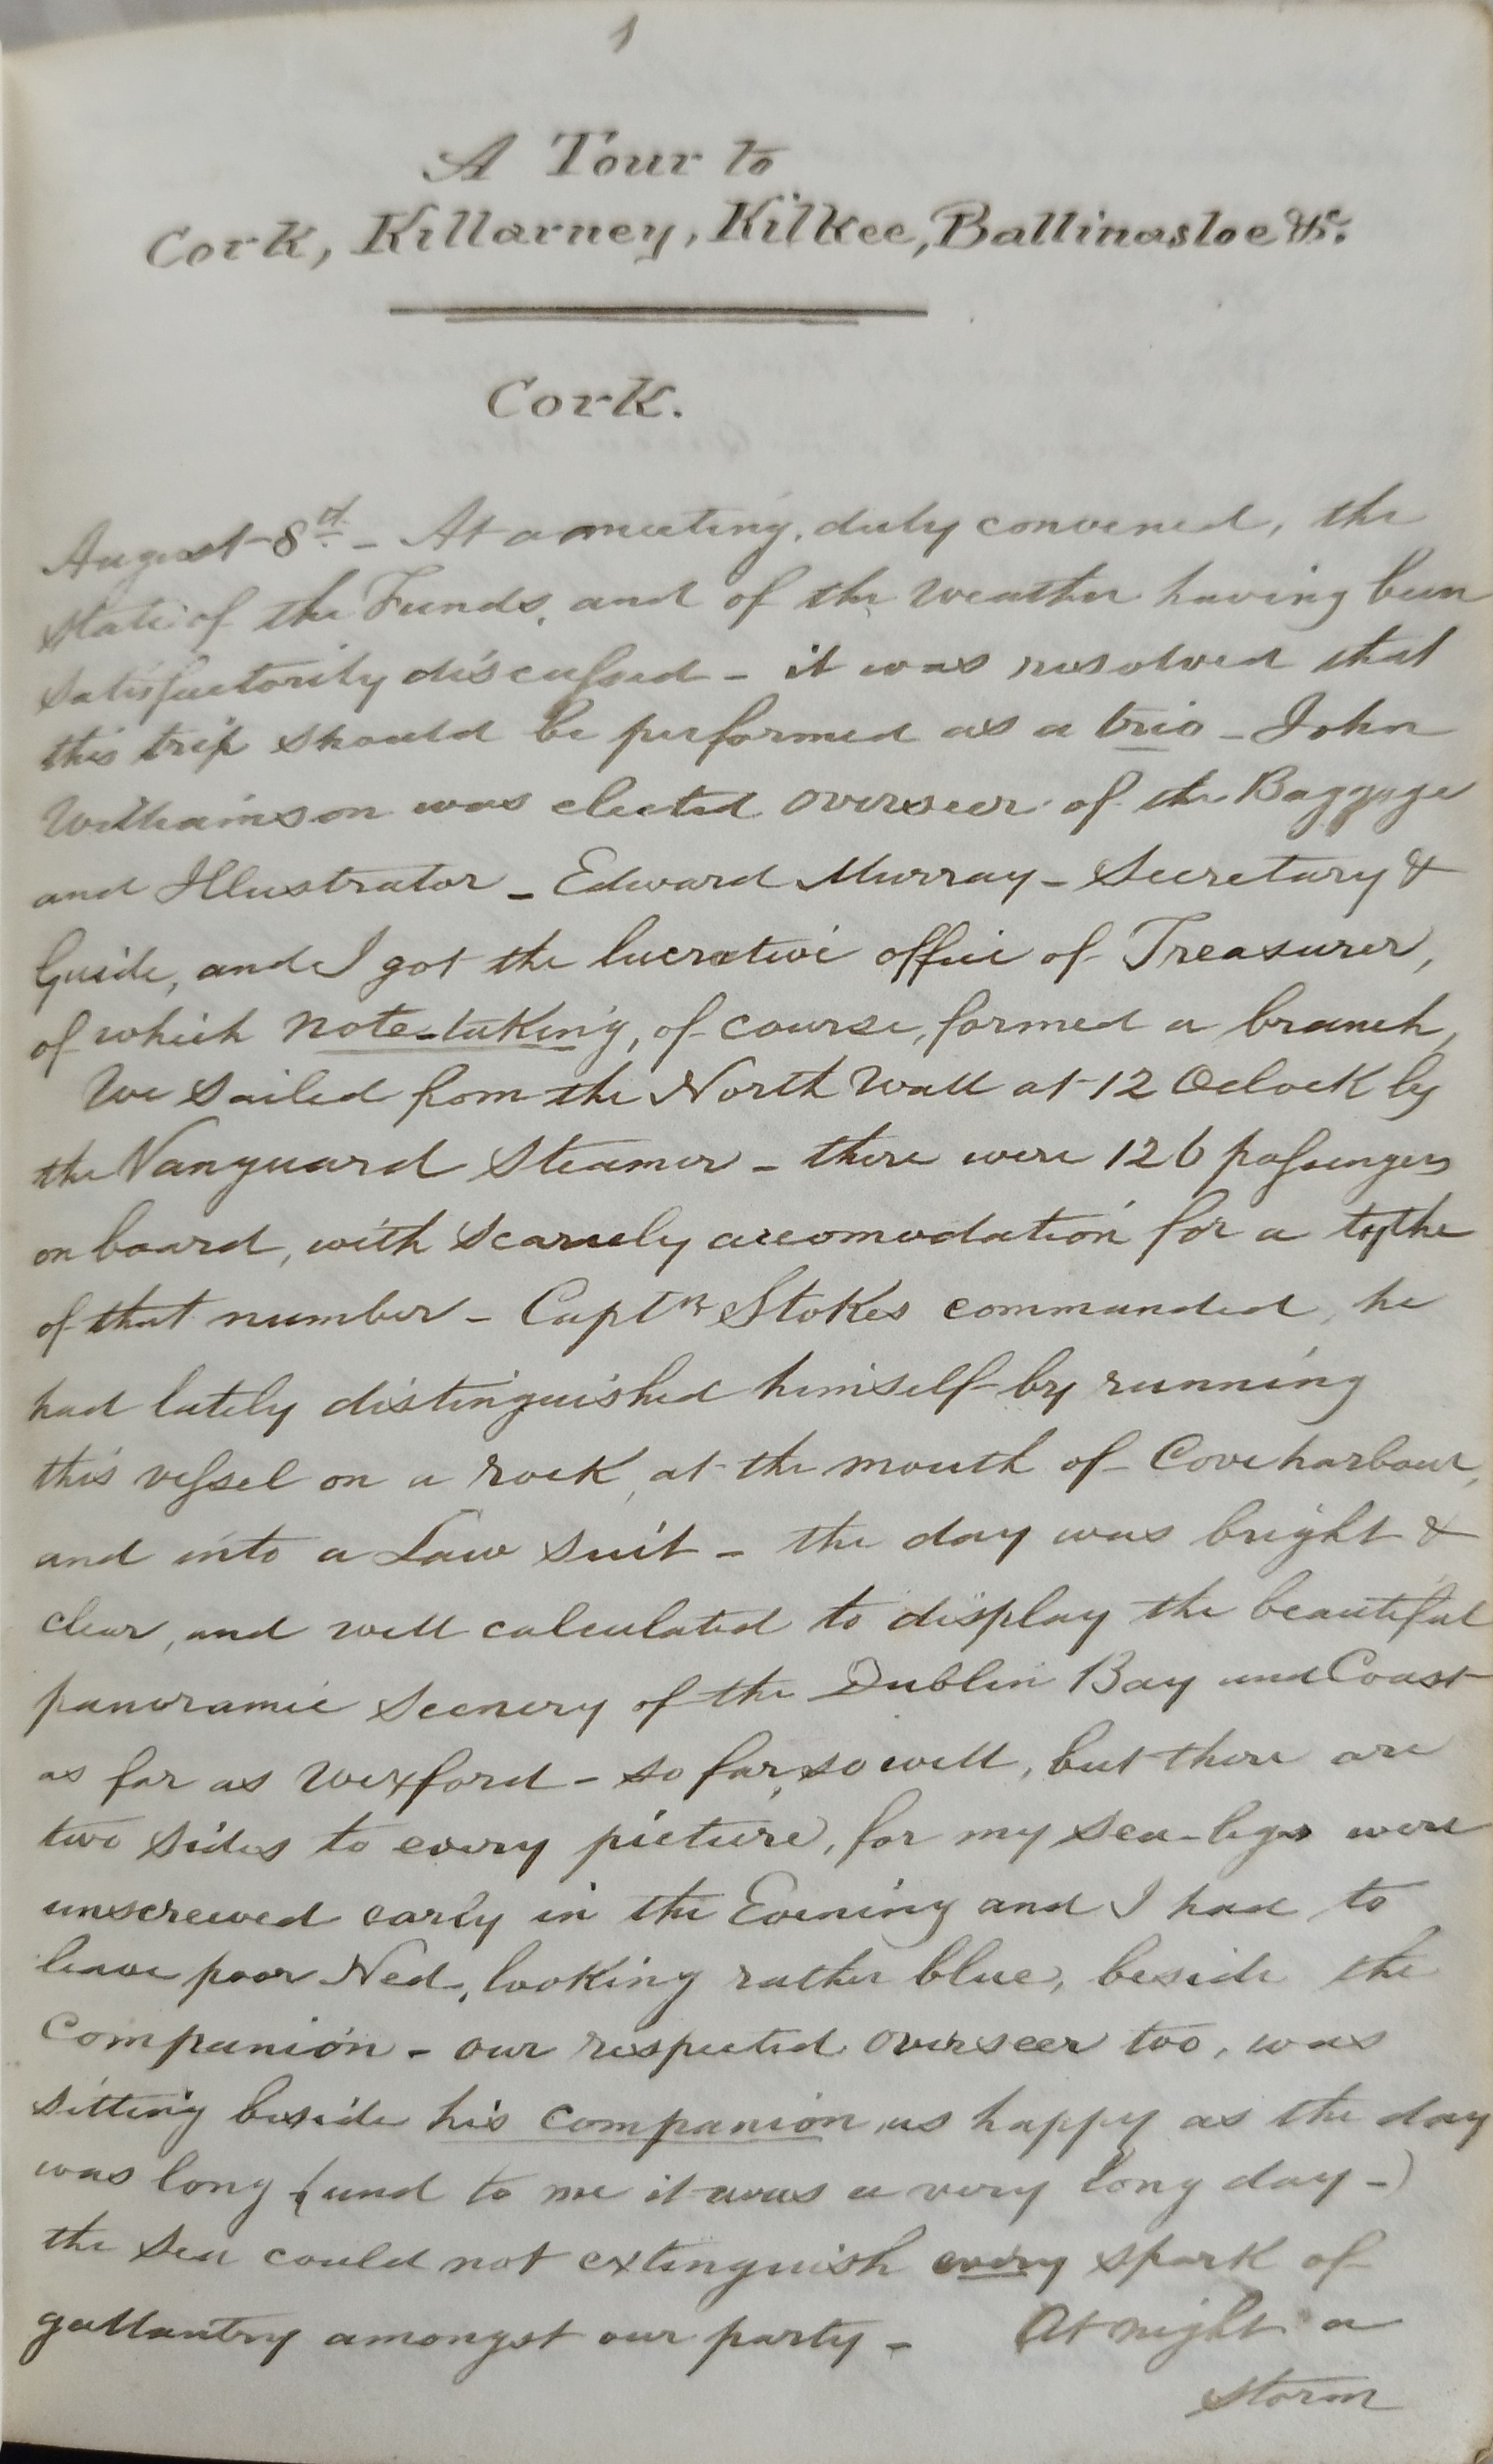 1
A Tour to
Cork, Killarney, Kilkee, Ballinasloe &c.
Cork.
August 8th. - At a meeting, duly convened, the
state of the Funds, and of the Weather having been
satisfactorily discussed - it was resolved that
this trip should be performed as a trio - John
Williamson was elected Overseer of the Baggage
and Illustrator - Edward Murray - Secretary &
Guide, and I got the lucrative office of Treasurer,
of which note-taking, of course, formed a branch,
We sailed from the North Wall at 12 Oclock by
the Vanguard Steamer - there were 126 passengers
on board, with scarcely accomodation for a tythe
of that number - Captn Stokes commanded, he
had lately distinguished himself by running
this vessel on a rock, at the mouth of Cove harbour,
and into a Law suit - the day was bright &
clear, and well calculated to display the beautiful
panoramic scenery of the Dublin Bay and Coast
as far as Wexford - so far, so well, but there are
two sides to every picture, for my sea-legs were
unscrewed early in the Evening and I had to
leave poor Ned, looking rather blue, beside the
Companion - our respected Overseer too, was
sitting beside his companion, as happy as the day
was long (and to me it was a very long day -)
the sea could not extinguish every spark of
gallantry amongst our party - At night a
storm